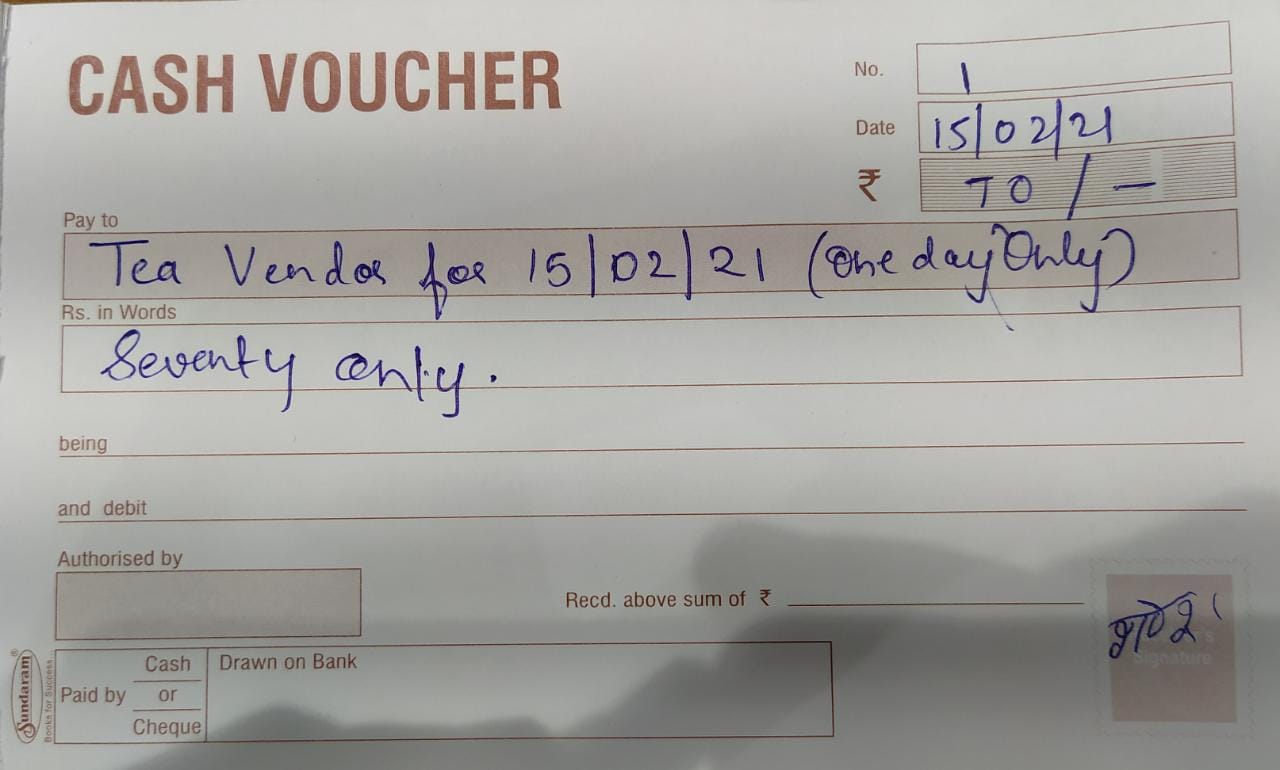 CASH VOUCHER
No. 1
Date 15/02/21
₹ 70/-
Pay to
Tea Vendor for 15/02/21 (One day Only)
Rs. in Words
Seventy only.
being
and debit
Authorised by
Recd. above sum of ₹
Signature
Paid by Cash or Cheque
Drawn on Bank
Sundaram®
Books for Success...